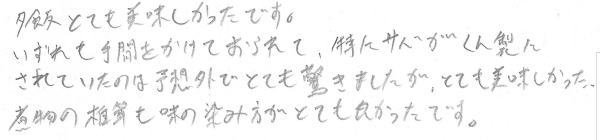 夕飯とても美味しかったです。
いずれも手間をかけておられて、特にサバがくん製に
されていたのは予想外でとても驚きましたが、とても美味しかった、
煮物の椎茸も味の染み方がとても良かったです。